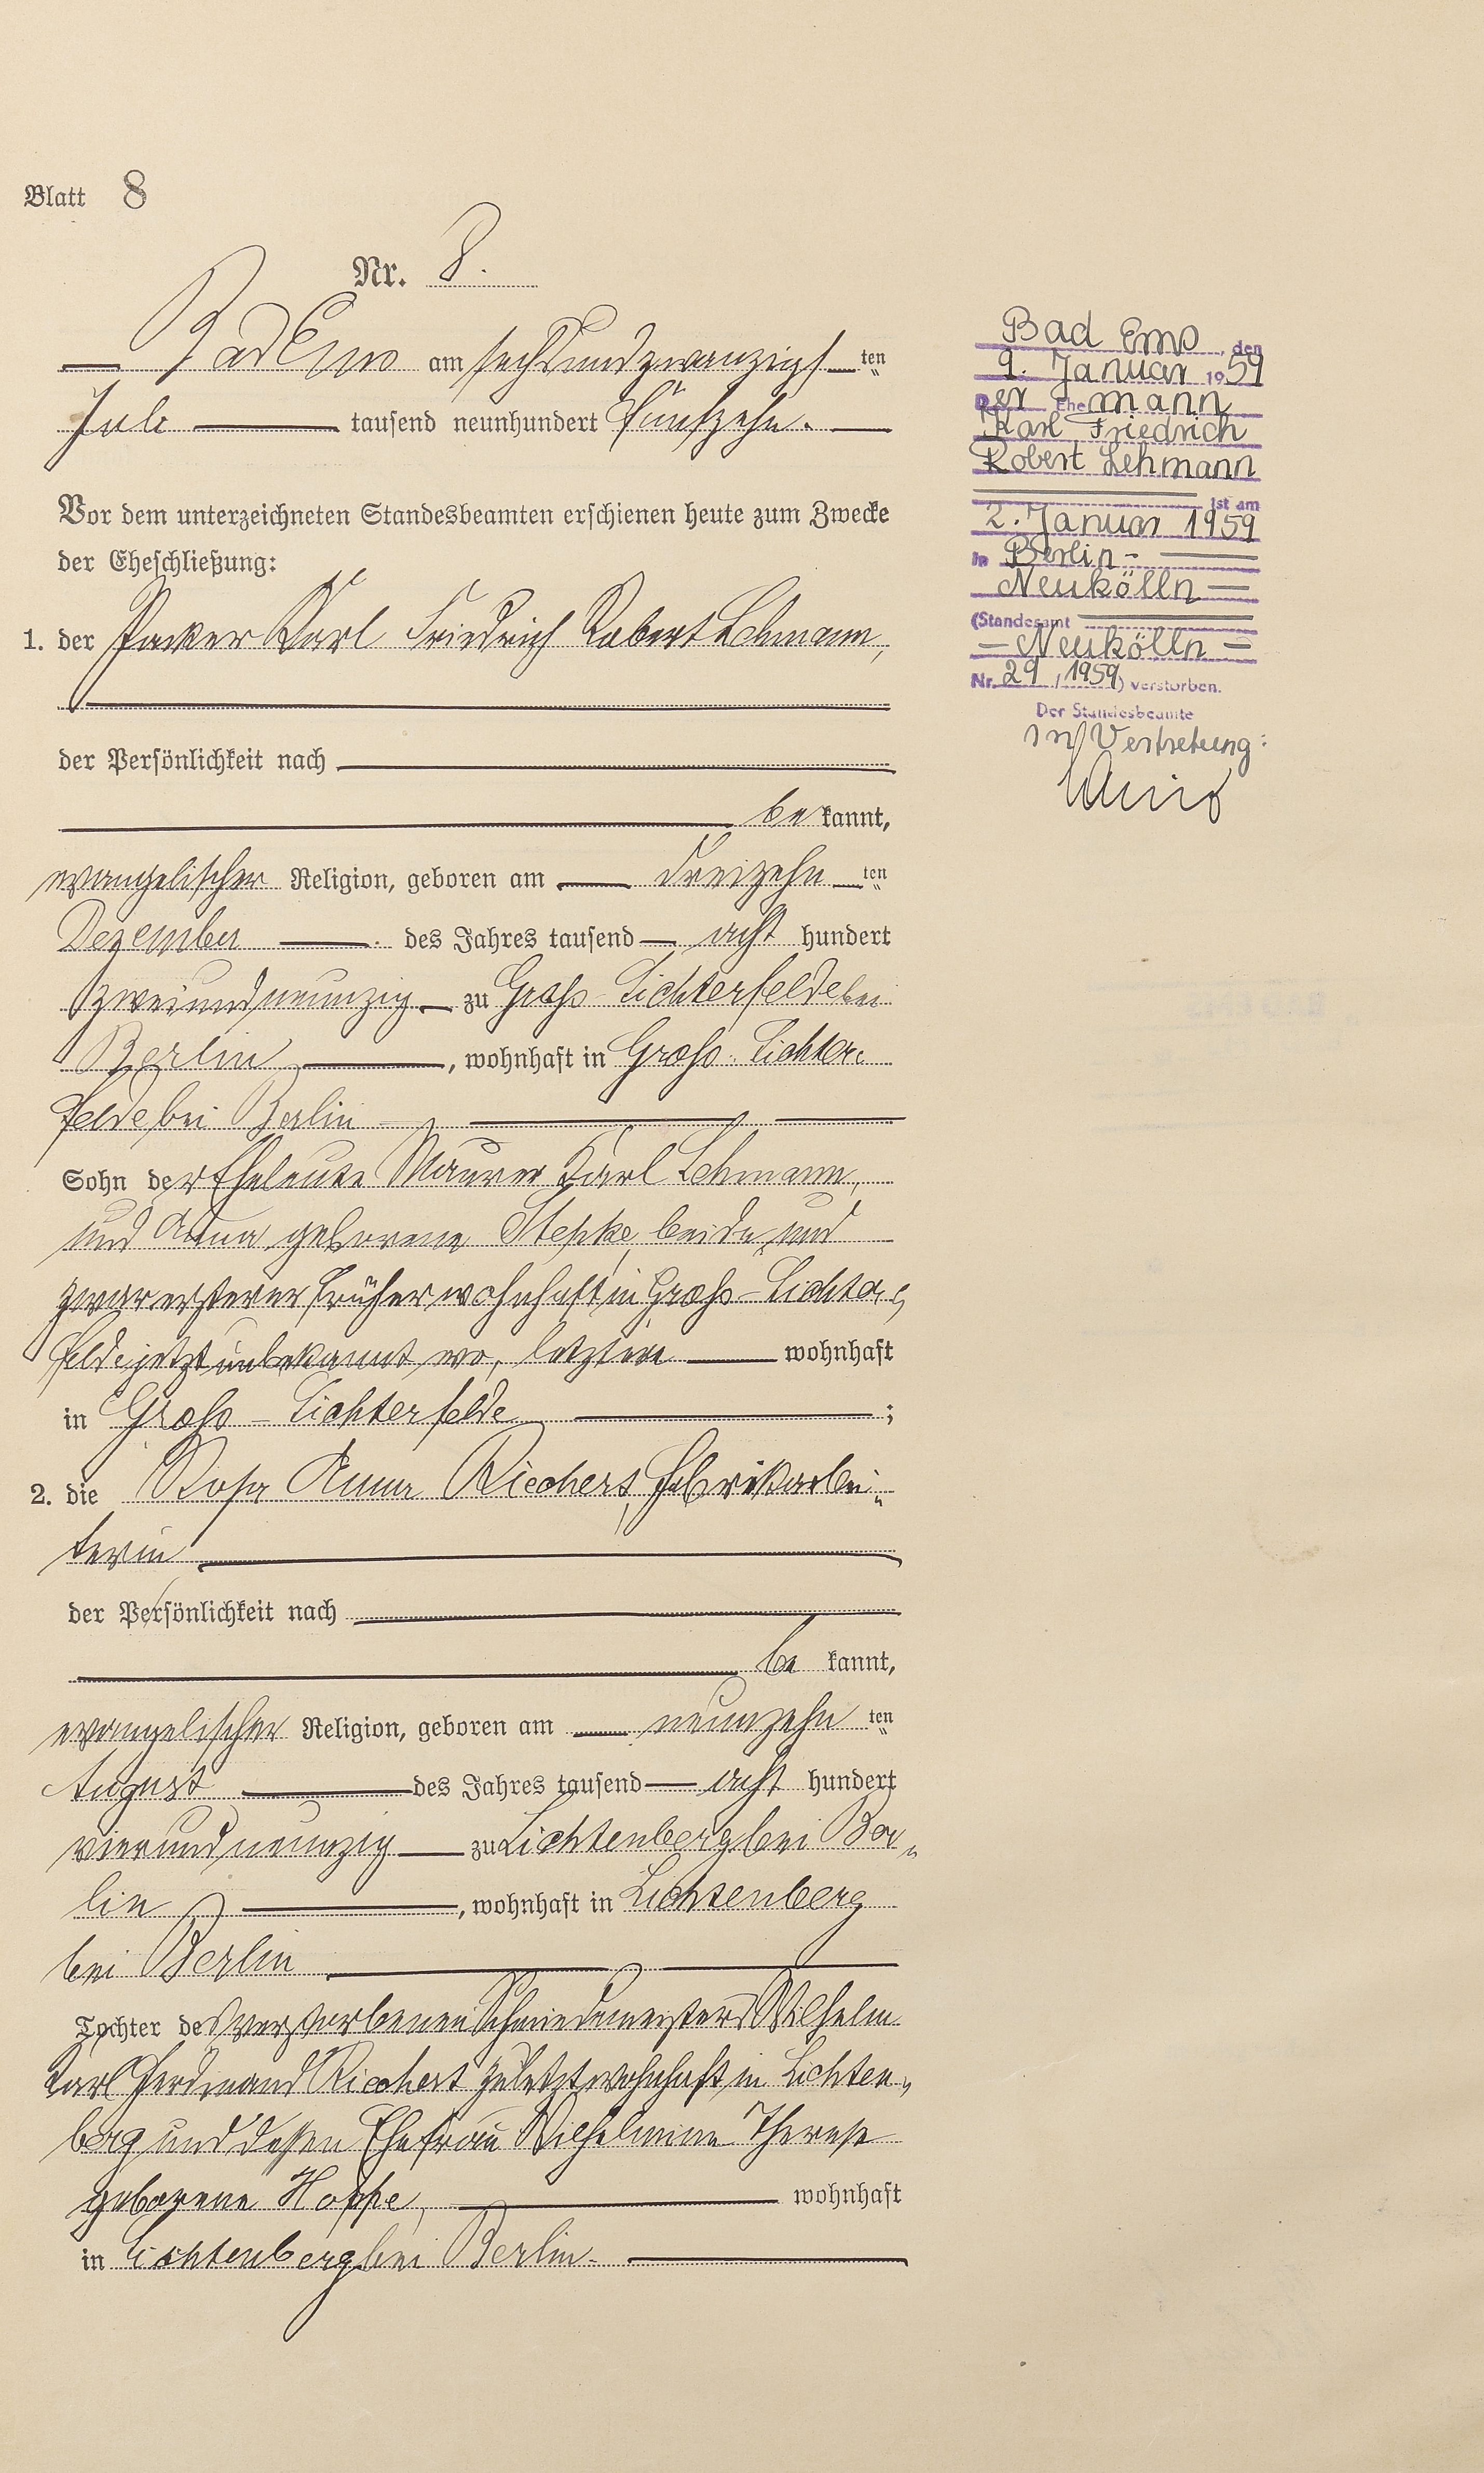 Blatt 8
Nr. 8.
Bad Ems am sechsundzwanzigsten
Juli tausend neunhundert fünfzehn.
Vor dem unterzeichneten Standesbeamten erschienen heute zum Zwecke
der Eheschließung:
1. der Packer Karl Friedrich Robert Lehmann,
der Persönlichkeit nach
bekannt,
evangelischer Religion, geboren am dreizehnten
Dezember des Jahres tausend acht hundert
zweiundneunzig zu Gross-Lichterfelde bei
Berlin, wohnhaft in Gross-Lichter-
felde bei Berlin
Sohn der Eheleute Maurer Karl Lehmann,
und Anna geborene Stepke, beide und
zwar ersterer früher wohnhaft in Gross-Lichter-
felde jetzt unbekannt wo, letztere wohnhaft
in Gross-Lichterfelde;
2. die Rosa Anna Riechers, Fabrikarbei-
terin
der Persönlichkeit nach
bekannt,
evangelischer Religion, geboren am neunzehnten
August des Jahres tausend acht hundert
vierundneunzig zu Lichtenberg bei Ber-
lin, wohnhaft in Lichtenberg
bei Berlin
Tochter des verstorbenen Schmiedemeisters Wilhelm
Karl Ferdinand Riechers zuletzt wohnhaft in Lichten-
berg und dessen Ehefrau Wilhelmine Therese
geborene Hoppe, wohnhaft
in Lichtenberg bei Berlin.
Bad Ems, den
9. Januar 1959
Der Ehemann
Karl Friedrich
Robert Lehmann
ist am
2. Januar 1959
in Berlin-
Neukölln
(Standesamt
Neukölln
Nr. 29/1959) verstorben.
Der Standesbeamte
In Vertretung: